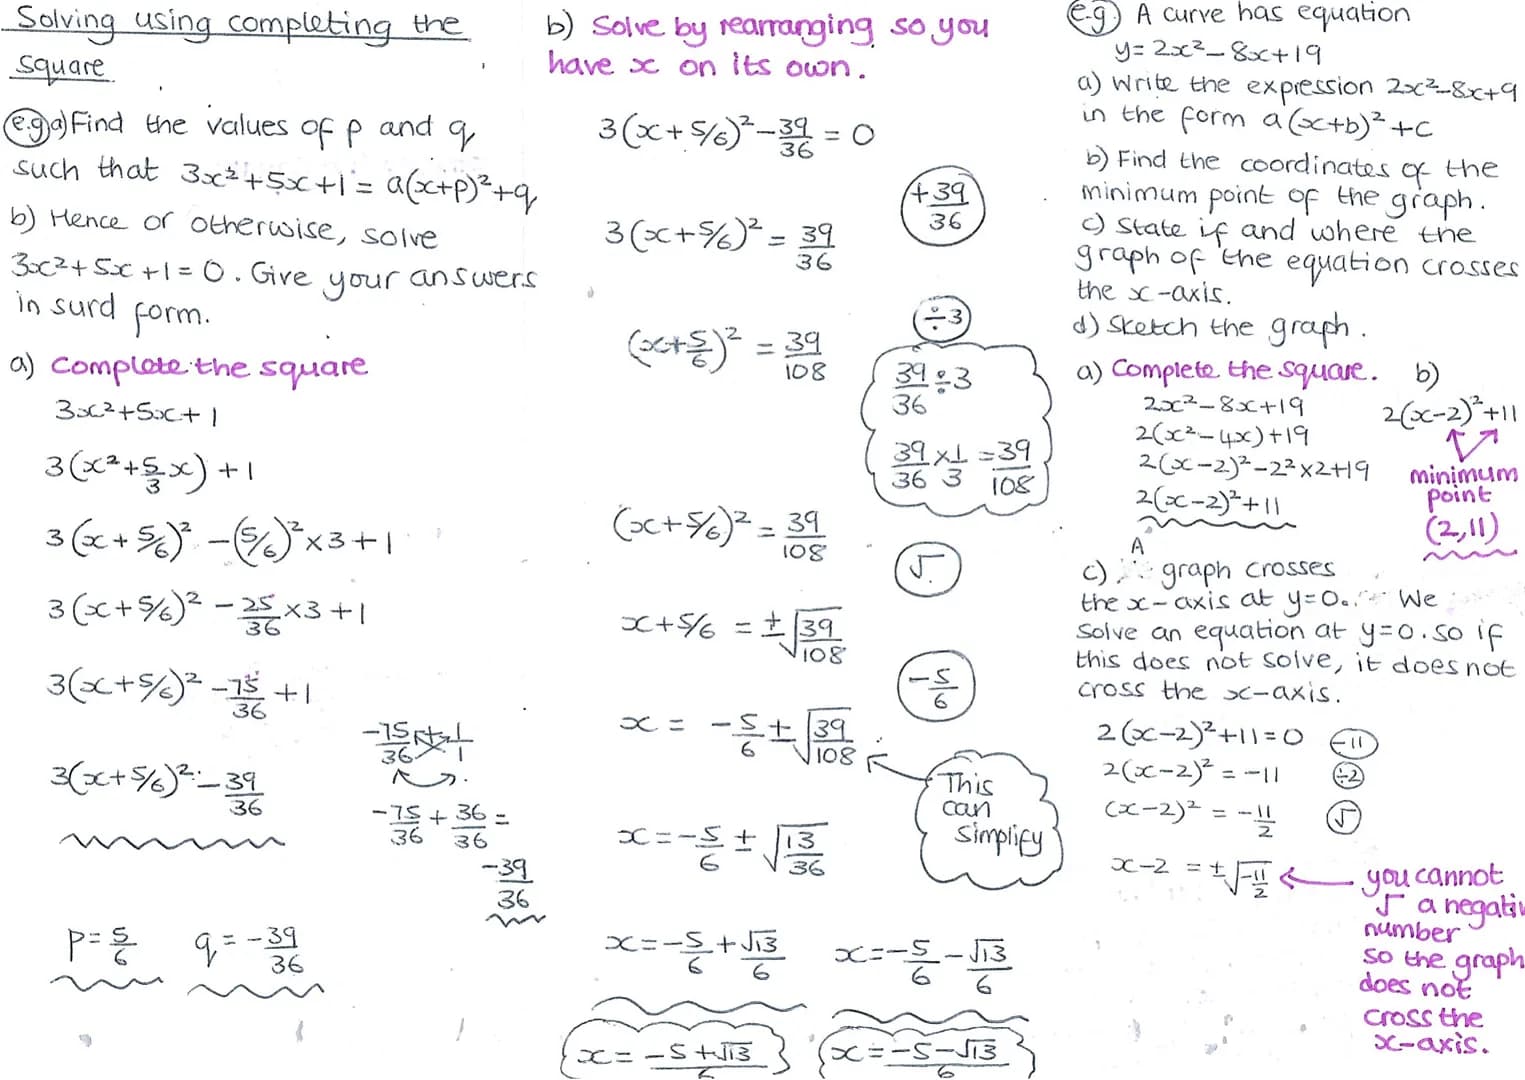 Solving using completing the
square
e.g a) Find the values of p and q
such that 3x²+5x+1 = a(x+p)²+q
b) Hence or otherwise, solve
3x²+5x+1=0. Give your answers
in surd form.
a) Complete the square
3x²+5x+1
3(x²+5/3x)+1
3(x+5/6)²-(5/6)²×3+1
3(x+5/6)²-25/36×3+1
3(x+5/6)²-75/36+1
-75/36+1/1
3(x+5/6)²-39/36
-75/36+36/36=
-39/36
p=5/6 q=-39/36
b) Solve by rearranging so you
have x on its own.
3(x+5/6)²-39/36=0
+39/36
3(x+5/6)²=39/36
÷3
(x+5/6)²=39/108
39/36÷3
39/36×1/3=39/108
(x+5/6)²=39/108
√
x+5/6=±√39/108
-5/6
x=-5/6±√39/108
This
can
simplify
x=-5/6±√13/36
x=-5/6+√13/6 x=-5/6-√13/6
x=-5+√13/6 x=-5-√13/6
e.g. A curve has equation
y=2x²-8x+19
a) Write the expression 2x²-8x+9
in the form a(x+b)²+c
b) Find the coordinates of the
minimum point of the graph.
c) State if and where the
graph of the equation crosses
the x-axis.
d) Sketch the graph.
a) Complete the square.
2x²-8x+19
2(x²-4x)+19
2(x-2)²-2²×2+19
2(x-2)²+11
A
b)
2(x-2)²+11
minimum
point
(2,11)
c) graph crosses
the x-axis at y=0. We
solve an equation at y=0. so if
this does not solve, it does not
cross the x-axis.
2(x-2)²+11=0 -11
2(x-2)²=-11 ÷2
(x-2)²=-11/2 √
x-2=±√-11/2
you cannot
√ a negativ
number
so the graph
does not
cross the
x-axis.